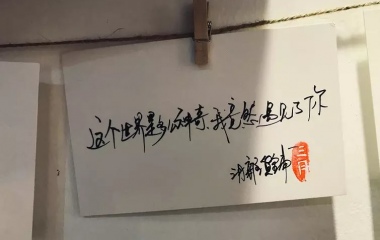 这个世界是多么神奇,我竟然遇见了你
三月